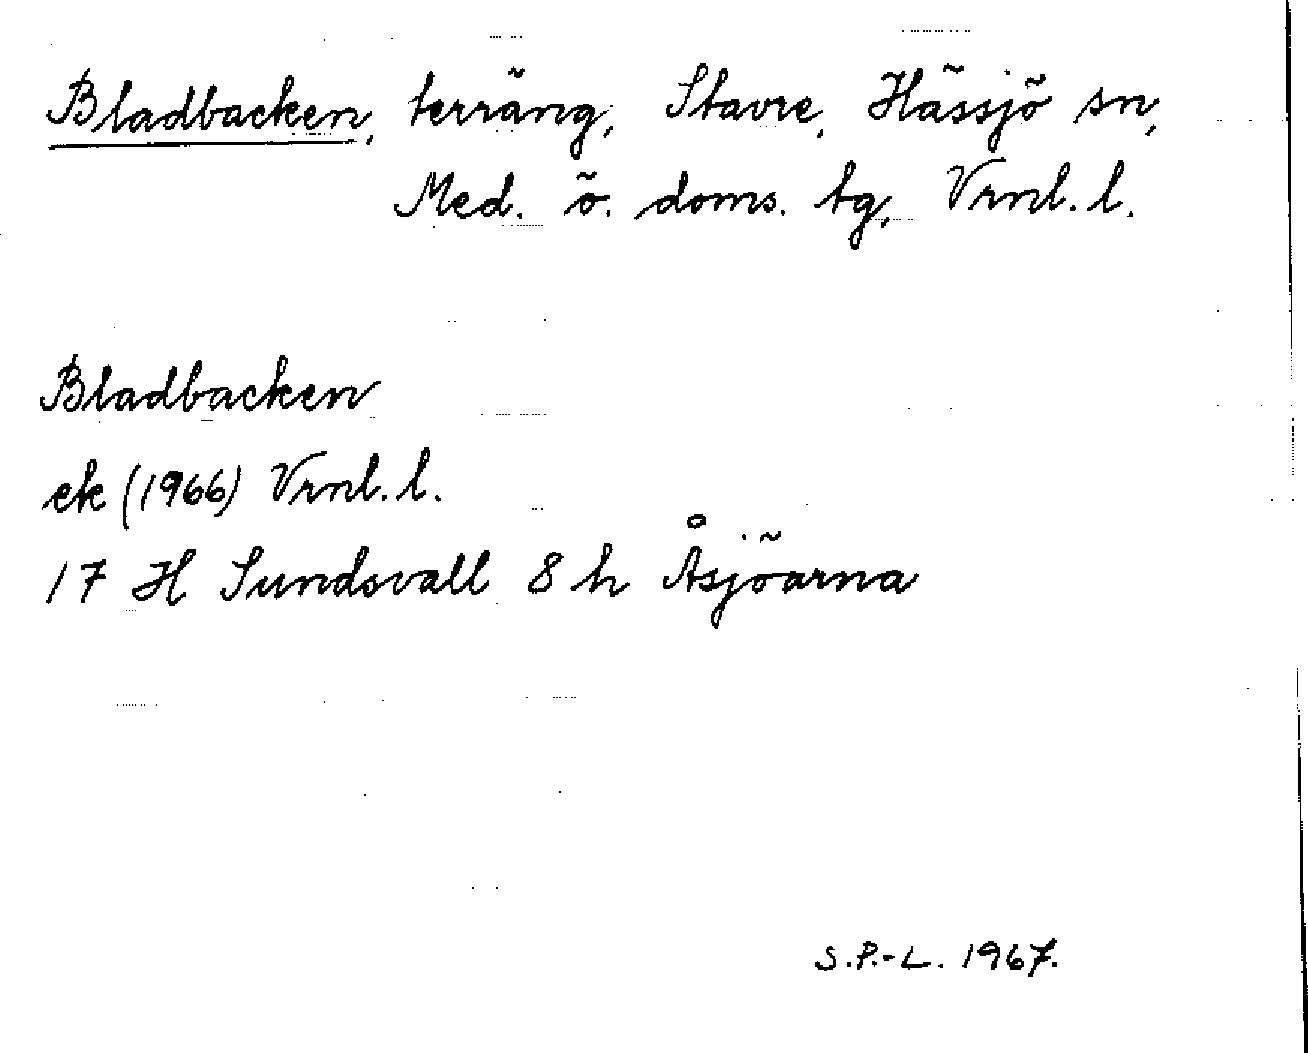 Bladbacken, terräng, Stavre, Hässjö sn,
Med. ö. doms. tg, Vrnl. l.
Bladbacken
ek (1966) Vrnl. l.
17 H Sundsvall 8 h Åsjöarna
S.P.-L. 1967.